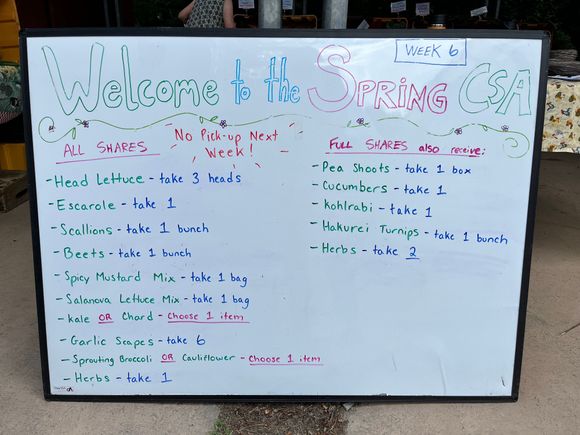 WEEK 6
Welcome to the Spring CSA
No Pick-up Next
Week!
ALL SHARES
- Head Lettuce - take 3 heads
- Escarole - take 1
- Scallions - take 1 bunch
- Beets - take 1 bunch
- Spicy Mustard Mix - take 1 bag
- Salanova Lettuce Mix - take 1 bag
- Kale OR Chard - Choose 1 item
- Garlic Scapes - take 6
- Sprouting Broccoli OR Cauliflower - Choose 1 item
- Herbs - take 1
FULL SHARES also receive:
- Pea Shoots - take 1 box
- Cucumbers - take 1
- Kohlrabi - take 1
- Hakurei Turnips - take 1 bunch
- Herbs - take 2